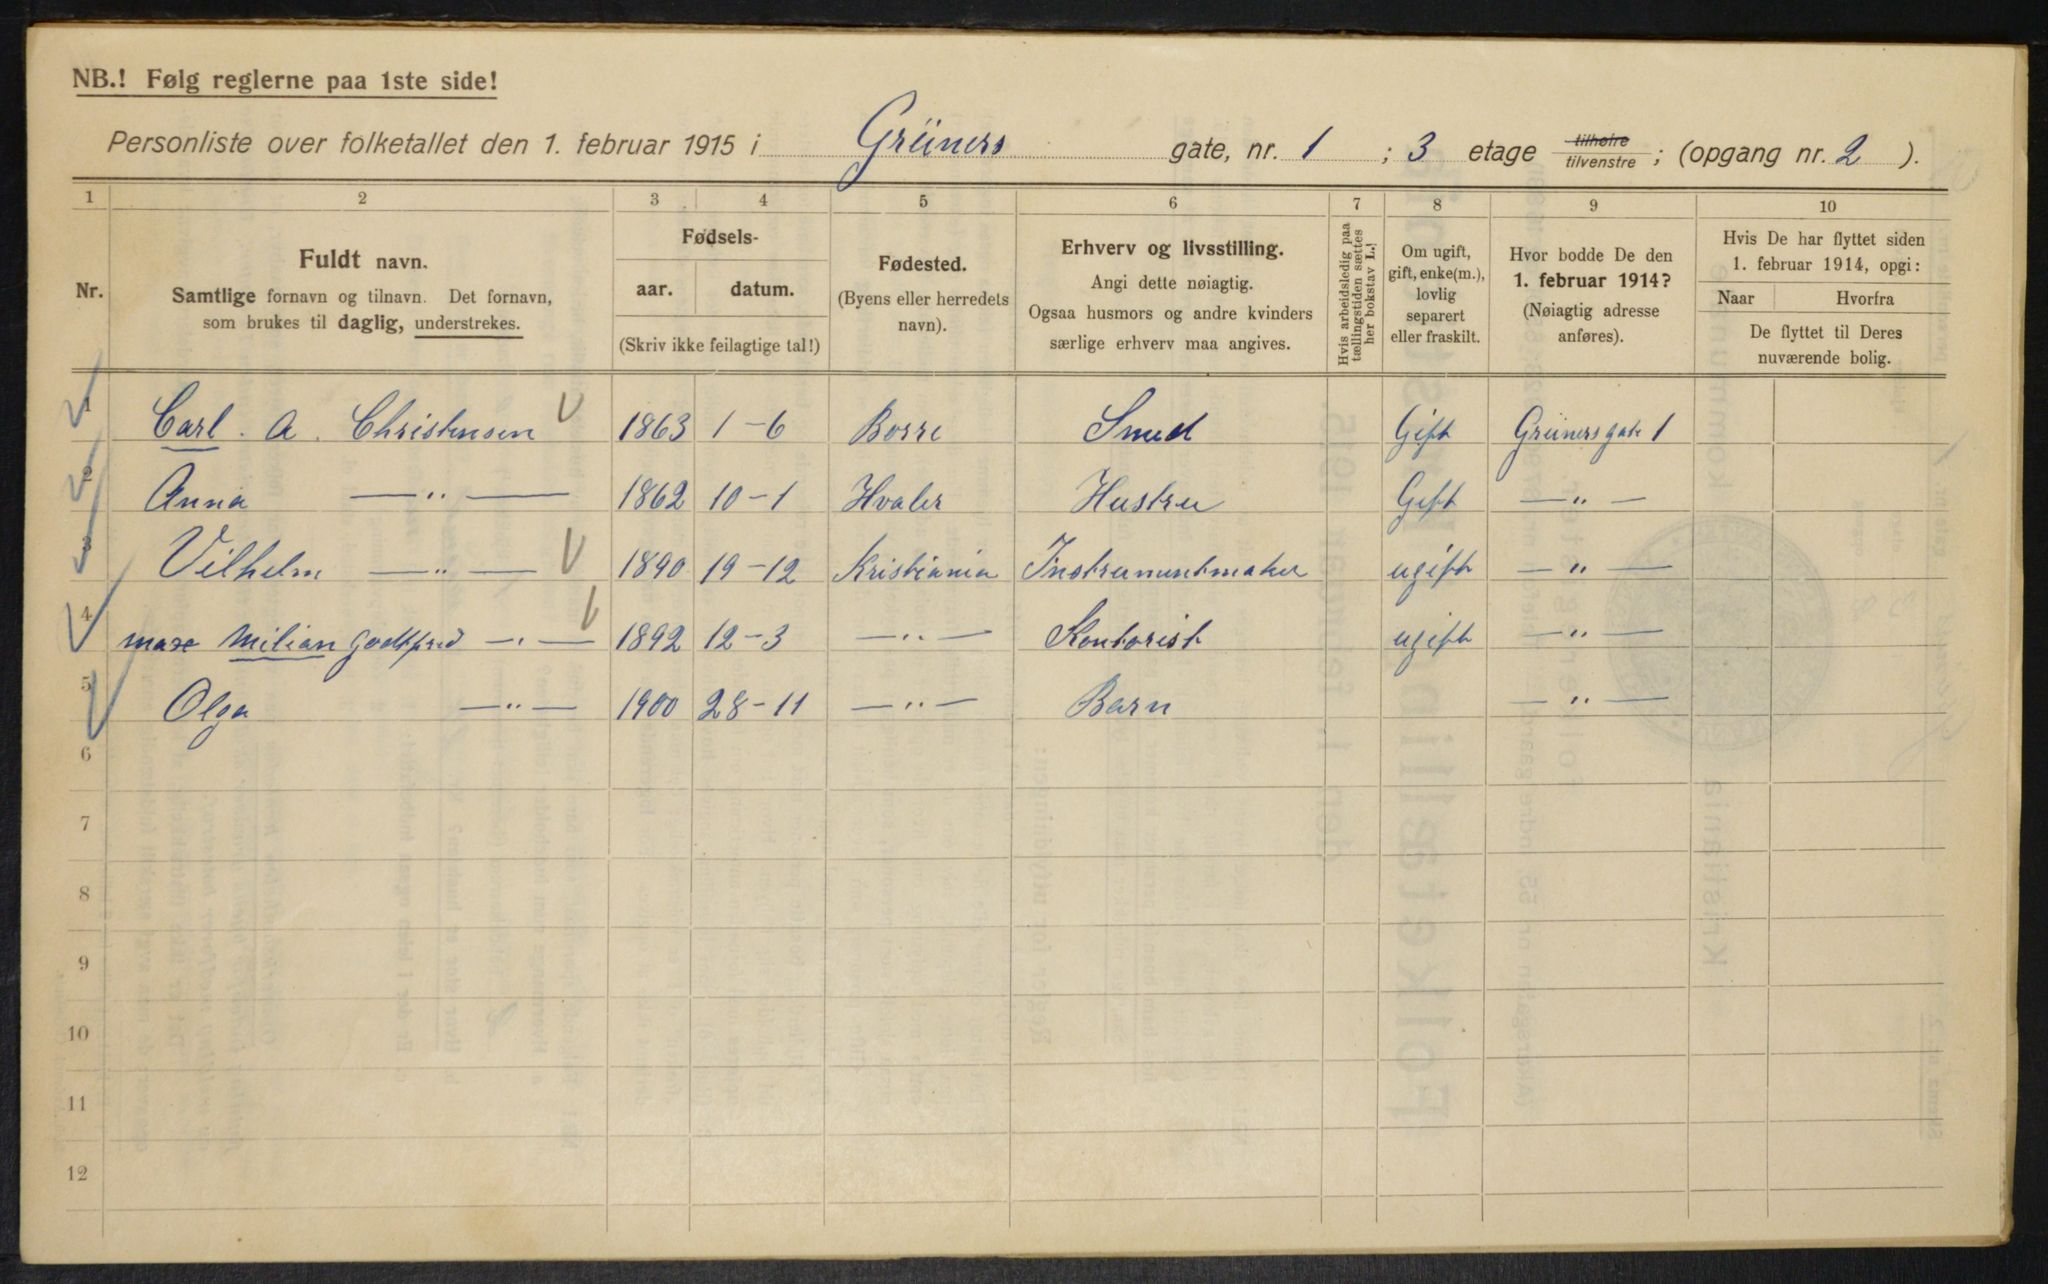 NB.! Følg reglerne paa 1ste side!
Personliste over folketallet den 1. februar 1915 i Grüners gate, nr. 1 ; 3 etage tilhøire tilvenstre ; (opgang nr. 2 ).
1 2 3 4 5 6 7 8 9 10
Nr.
Fuldt navn.
Samtlige fornavn og tilnavn. Det fornavn,
som brukes til daglig, understrekes.
Fødsels-
aar. datum.
(Skriv ikke feilagtige tal!)
Fødested.
(Byens eller herredets
navn).
Erhverv og livsstilling.
Angi dette nøiagtig.
Ogsaa husmors og andre kvinders
særlige erhverv maa angives.
Hvis arbeidsledig paa
tællingstiden sættes
her bokstav L.!
Om ugift,
gift, enke(m.),
lovlig
separert
eller fraskilt.
Hvor bodde De den
1. februar 1914?
(Nøiagtig adresse
anføres).
Hvis De har flyttet siden
1. februar 1914, opgi:
Naar Hvorfra
De flyttet til Deres
nuværende bolig.
1 Carl. A. Christensen 1863 1-6 Borre Smed Gift Grünersgate 1
2 Anna —„— 1862 10-1 Hvaler Hustru Gift —„—
3 Vilhelm —„— 1890 19-12 Kristiania Instrumentmaker ugift —„—
4 Max Milian Godtfred —„— 1892 12-3 —„— Kontorist ugift —„—
5 Olga —„— 1900 28-11 —„— Barn —„—
6
7
8
9
10
11
12